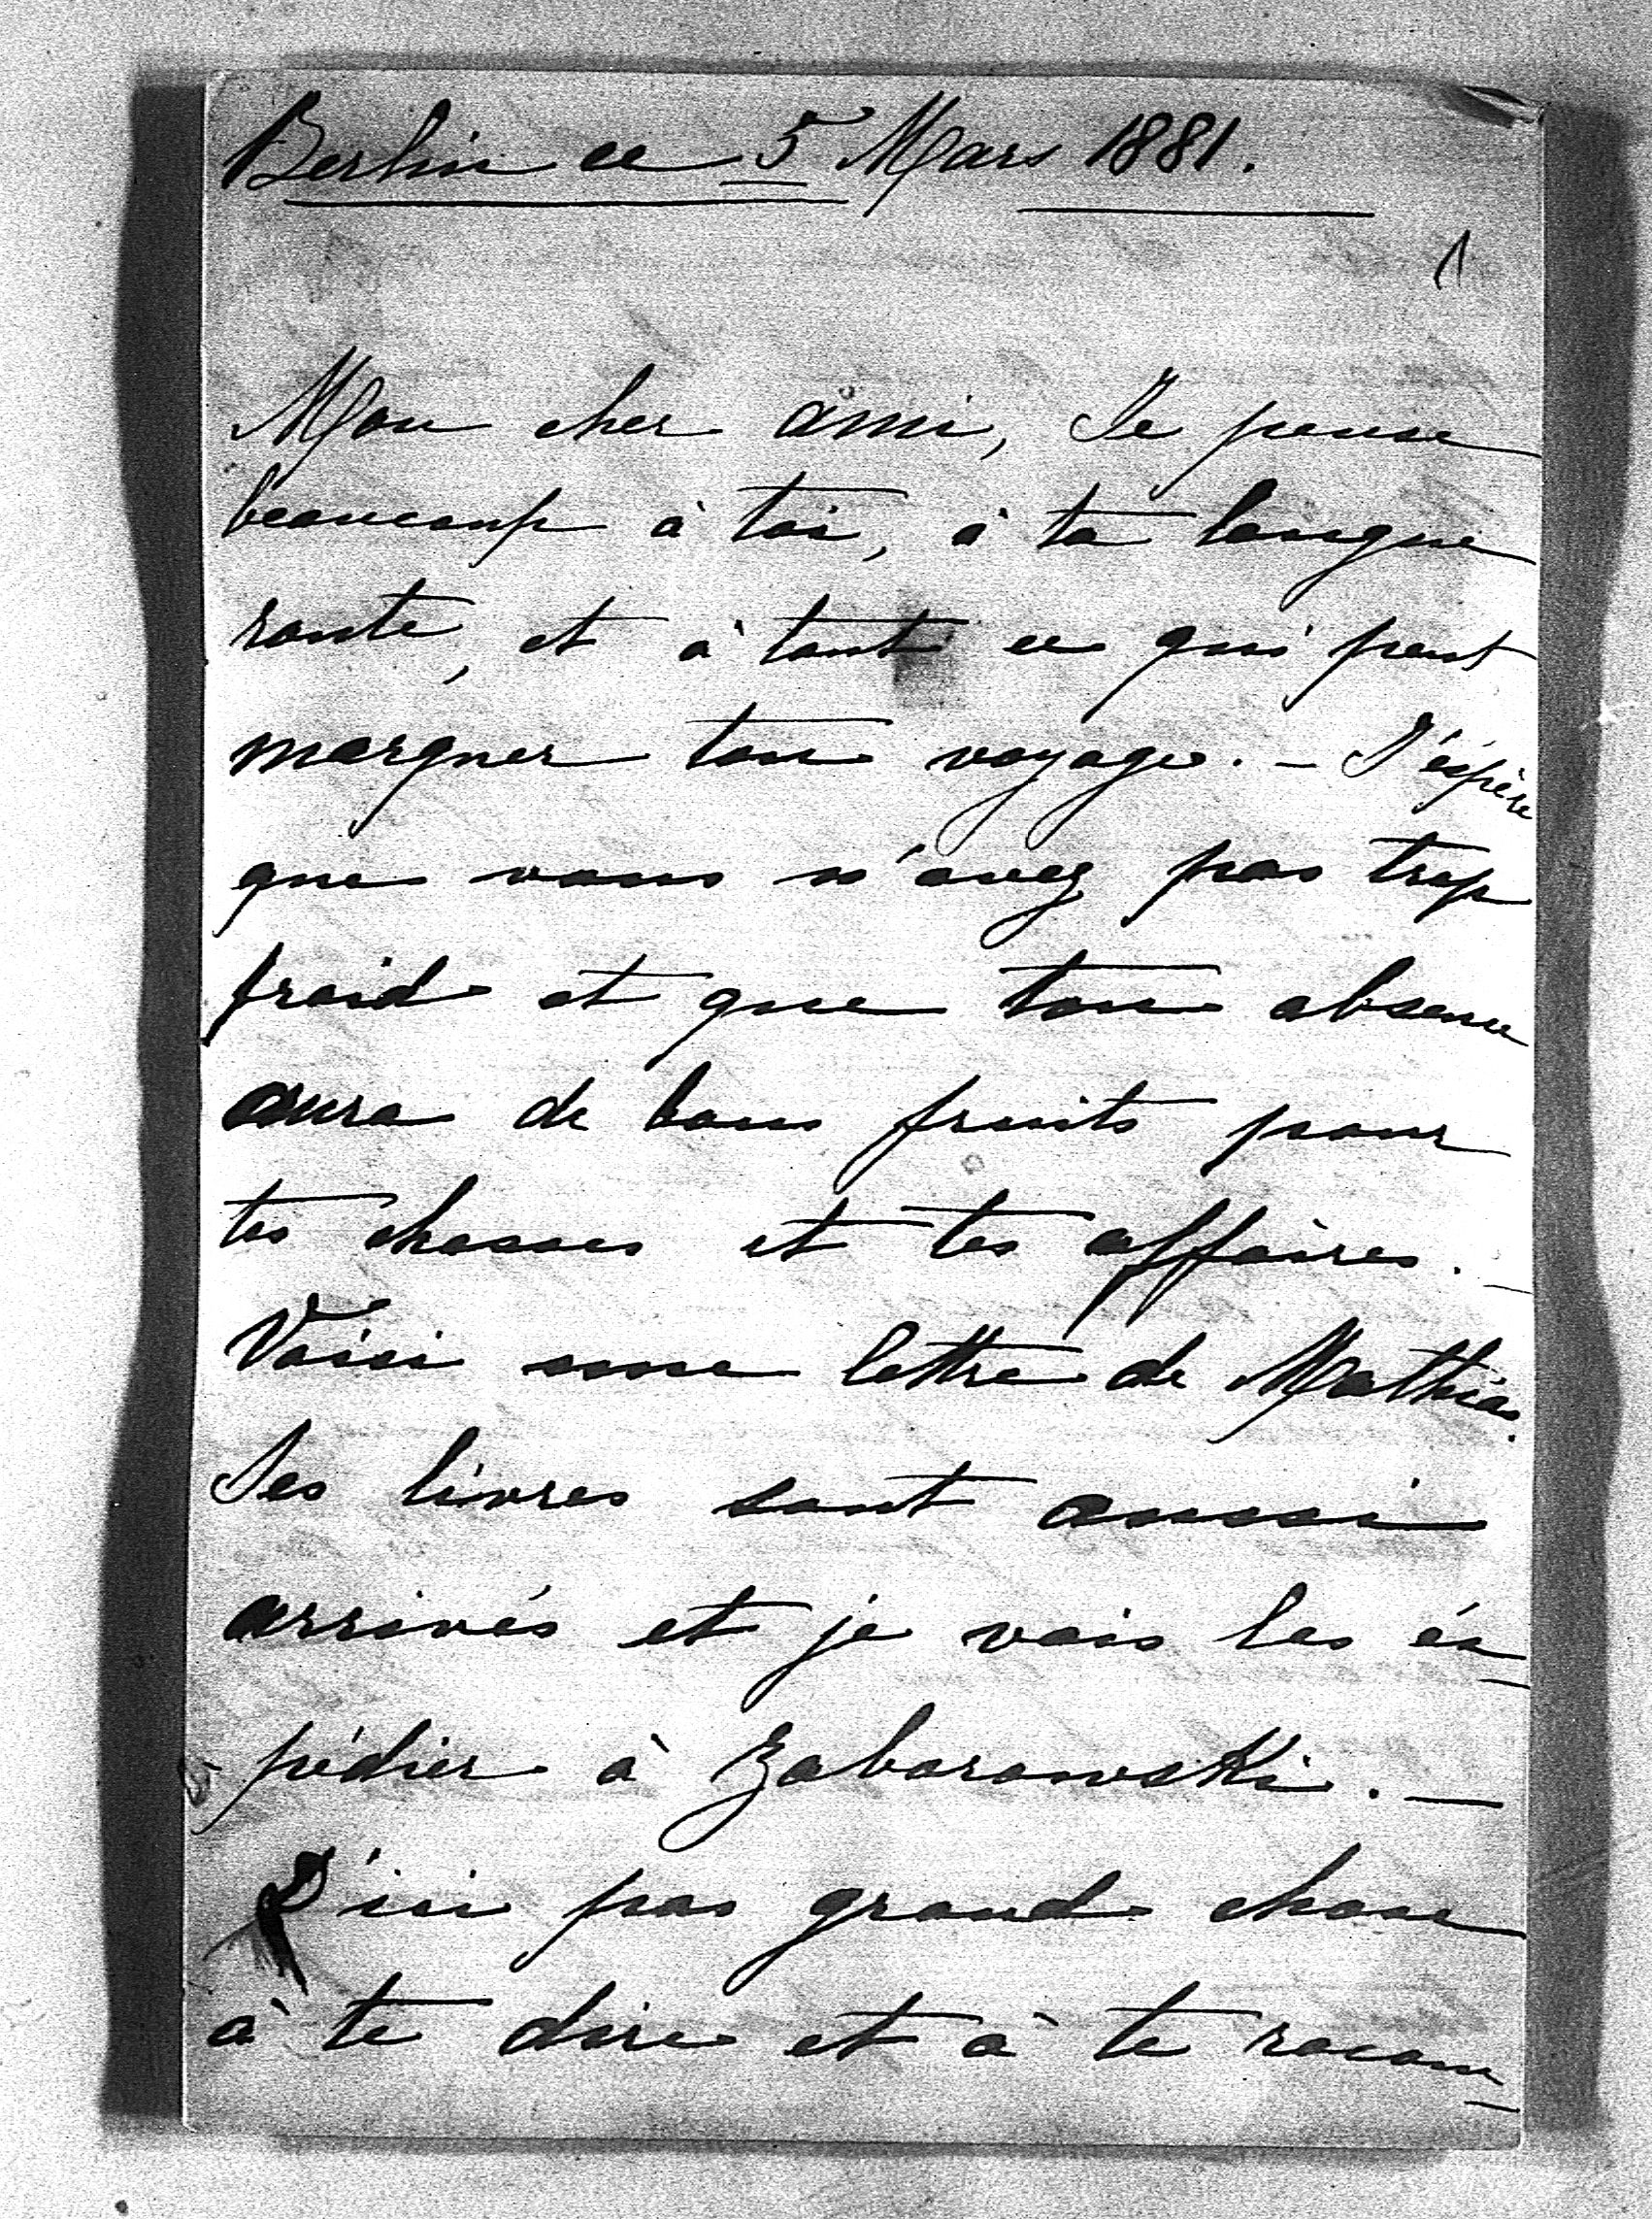 Berlin ce 5 Mars 1881.
1
Mon cher ami, Je pense
beaucoup à toi, à ta longue
route, et à tout ce qui peut
marquer ton voyage. – J'éspère
que vous n'avez pas trop
froid et que ton absence
aura de bons fruits pour
tes chasses et tes affaires. –
Voici une lettre de Mathias.
Ses livres sont aussi
arrivés et je vais les éx-
pédier à Zaborowski. –
D'ici pas grand chose
à te dire et à te racon-